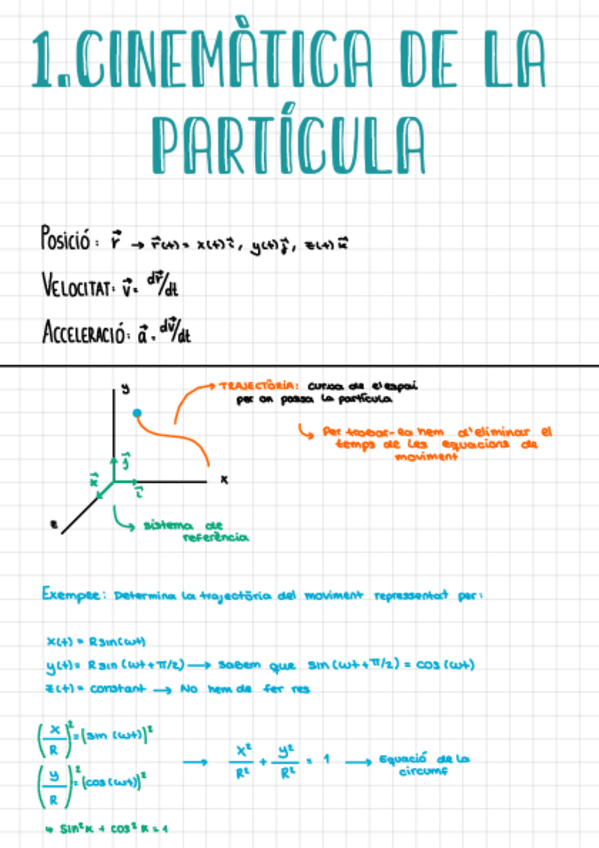 1. CINEMÀTICA DE LA
PARTÍCULA
POSICIÓ: r⃗ → r⃗(t) = x(t)i⃗, y(t)j⃗, z(t)k⃗
VELOCITAT: v⃗ = dr⃗/dt
ACCELERACIÓ: a⃗ = dv⃗/dt
y
TRAJECTÒRIA: curva de l'espai
per on passa la partícula
Per trobar-la hem d'eliminar el
temps de les equacions de
moviment
j⃗
k⃗
i⃗
x
z
sistema de
referència
Exemple: Determina la trajectòria del moviment representat per:
x(t) = Rsin(ωt)
y(t) = Rsin(ωt + π/2) → sabem que sin(ωt + π/2) = cos(ωt)
z(t) = constant → No hem de fer res
(x/R)² = (sin(ωt))²
(y/R)² = (cos(ωt))²
→ x²/R² + y²/R² = 1 → Equació de la
circumf
↳ sin²x + cos²x = 1